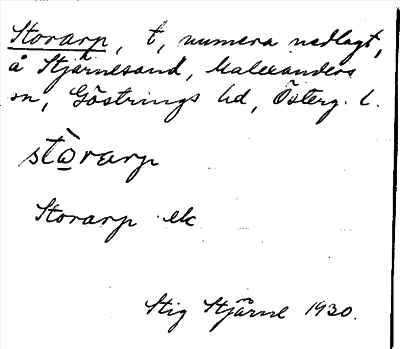 Storarp, t, numera nedlagt,
å Stjärnesand, Malexanders
sn, Göstrings hd, Österg. l.
stò̱rarp
Storarp ek
Stig Stjärne 1930.